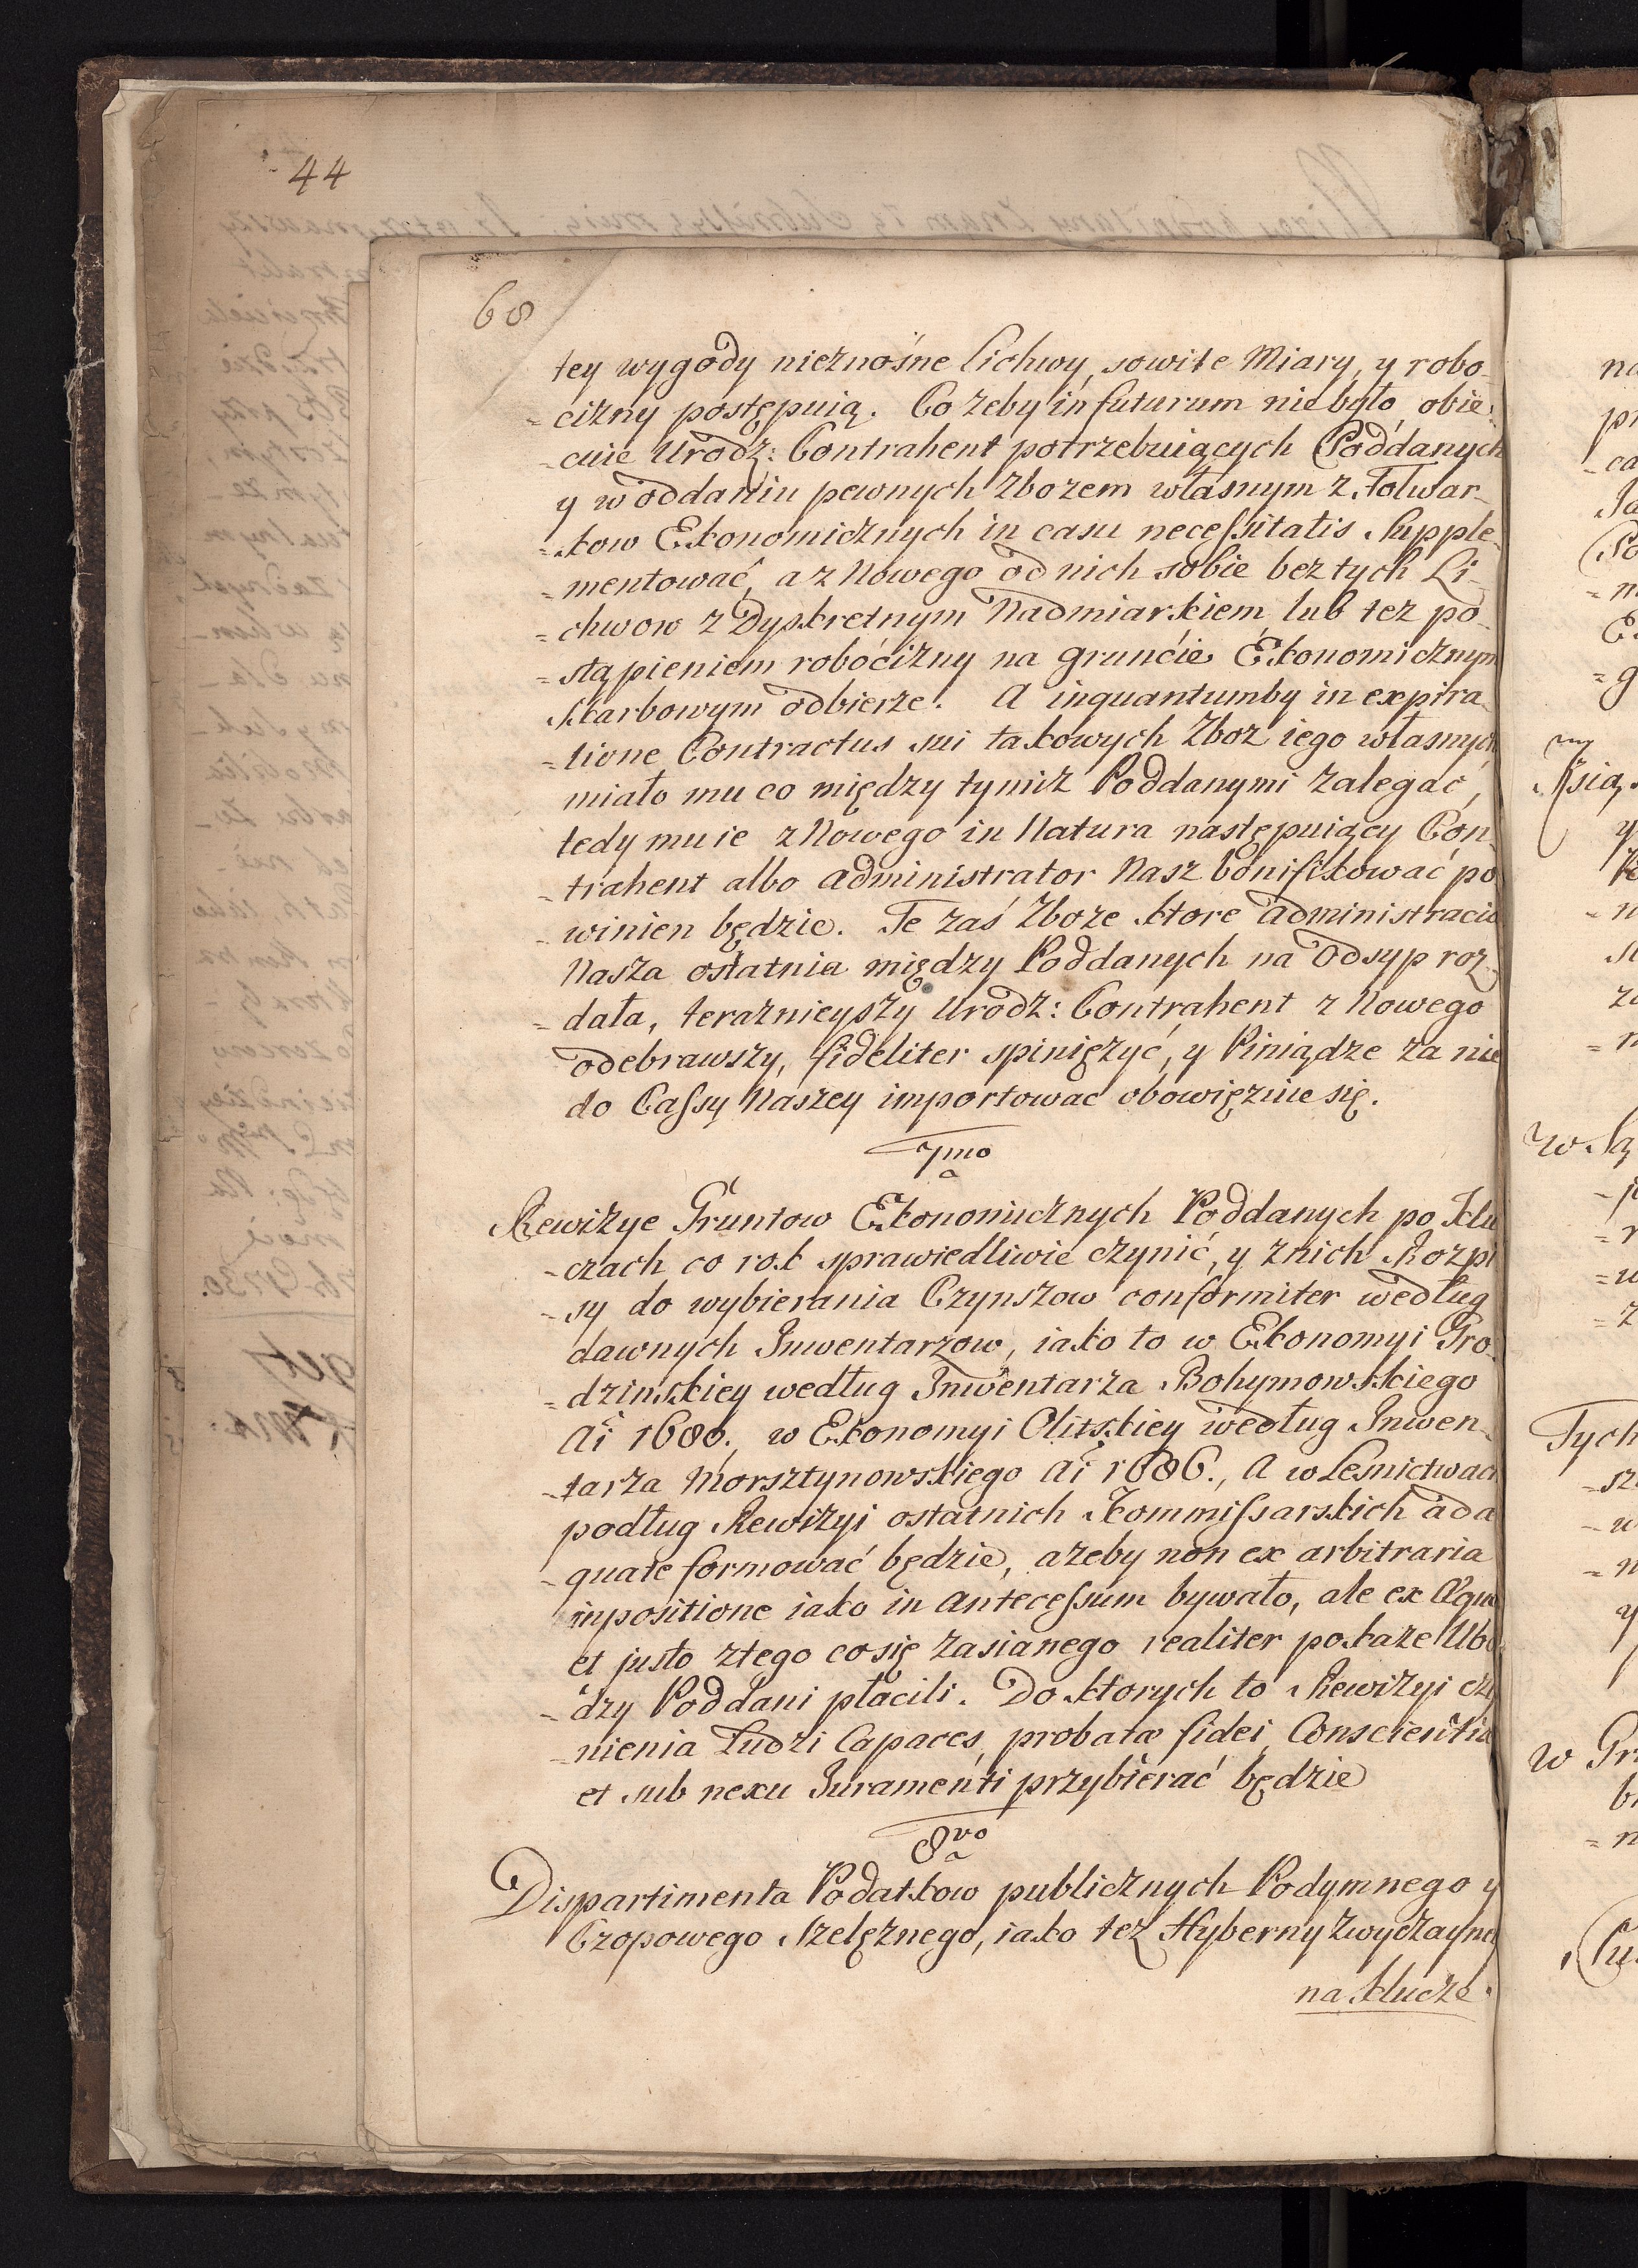 44
68
tey wygody nieznośne lichwy, sowite Miary, y robo-
=cizny postępuią. Co żeby in futurum nie było, obie-
-cuie Urodz: Contrahent potrzebuiących Poddanych
y w oddaniu pewnych Zbożem własnym z Folwar-
=kow Ekonomicznych in casu necessitatis Supple-
=mentować, a z Nowego od nich sobie bez tych Li-
=chwow z Dyskretnym Nadmiarkiem, lub też po-
=stąpieniem roboćizny na grunćie Ekonomicznym
Skarbowym odbierze. A inquantumby in expira-
-tione Contractus sui takowych Zboż iego własnych
miało mu co między tymiż Poddanymi zalegać,
tedy mu ie z Nowego in Natura następuiący Con-
-trahent albo Administrator Nasz bonifikować po
-winien będzie. Te zaś Zboże ktore Administracia
Nasza ostatnia między Poddanych na Odsyp roz-
=dała, teraznieyszy Urodz: Contrahent z Nowego
odebrawszy, fideliter spiniężyć, y Piniądze za nie
do Cassy Naszey importowac obowięzuie się.
7mo
Rewizye Gruntow Ekonomicznych Poddanych po Klu
-czach co rok sprawiedliwie czynić, y z nich Rozpi
-sy do wybierania Czynszow conformiter według
dawnych Inwentarzow, iako to w Ekonomyi Gro-
=dzinskiey według Inwentarza Bohymowskiego
Ai 1680., w Ekonomyi Olitskiey według Inwen-
-tarza Morsztynowskiego Ai 1686., A w Lesnictwach
podług Rewizyi ostatnich Kommissarskich ada
-quate formować będzie, ażeby non ex arbitraria
inpositione iako in antecessum bywało, ale ex Æquo
et justo z tego co się zasianego realiter pokaże Ubo
-dzy Poddani płacili. Do ktorych to Rewizyi czy
-nienia Ludzi Capaces, probatæ fidei, Conscientiæ
et sub nexu Juramenti przybierać będzie
8vo
Dispartimenta Podatkow publicznych Podymnego y
Czopowego Szelężnego, iako też Hyberny zwyczayney
na Klucze